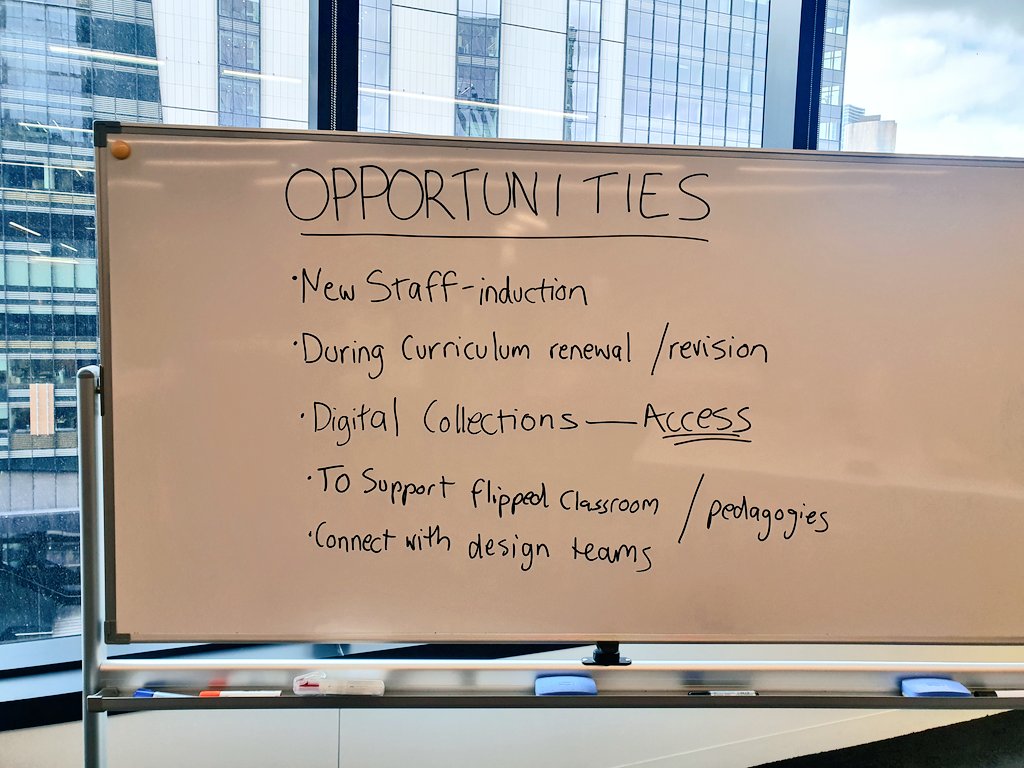 OPPORTUNITIES
·New Staff-induction
·During Curriculum renewal /revision
·Digital Collections — Access
·To Support flipped Classroom / pedagogies
·Connect with design teams